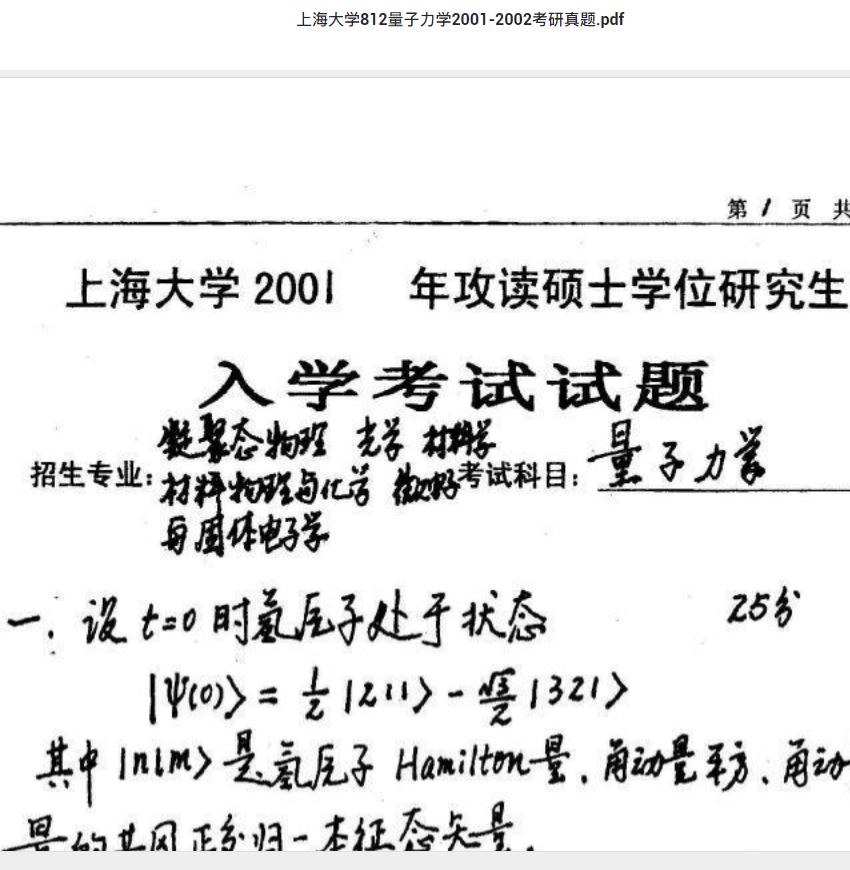 上海大学812量子力学2001-2002考研真题.pdf
第 1 页 共
上海大学 2001 年攻读硕士学位研究生
入学考试试题
招生专业: 凝聚态物理 光学 材料学 考试科目: 量子力学
材料物理与化学 微电子
与固体电子学
一. 设 t=0 时氢原子处于状态 25分
|ψ(0)> = 1/2 |211> - √3/2 |321>
其中 |nlm> 是氢原子 Hamilton量、角动量平方、角动
量的共同正交归一本征态矢量.